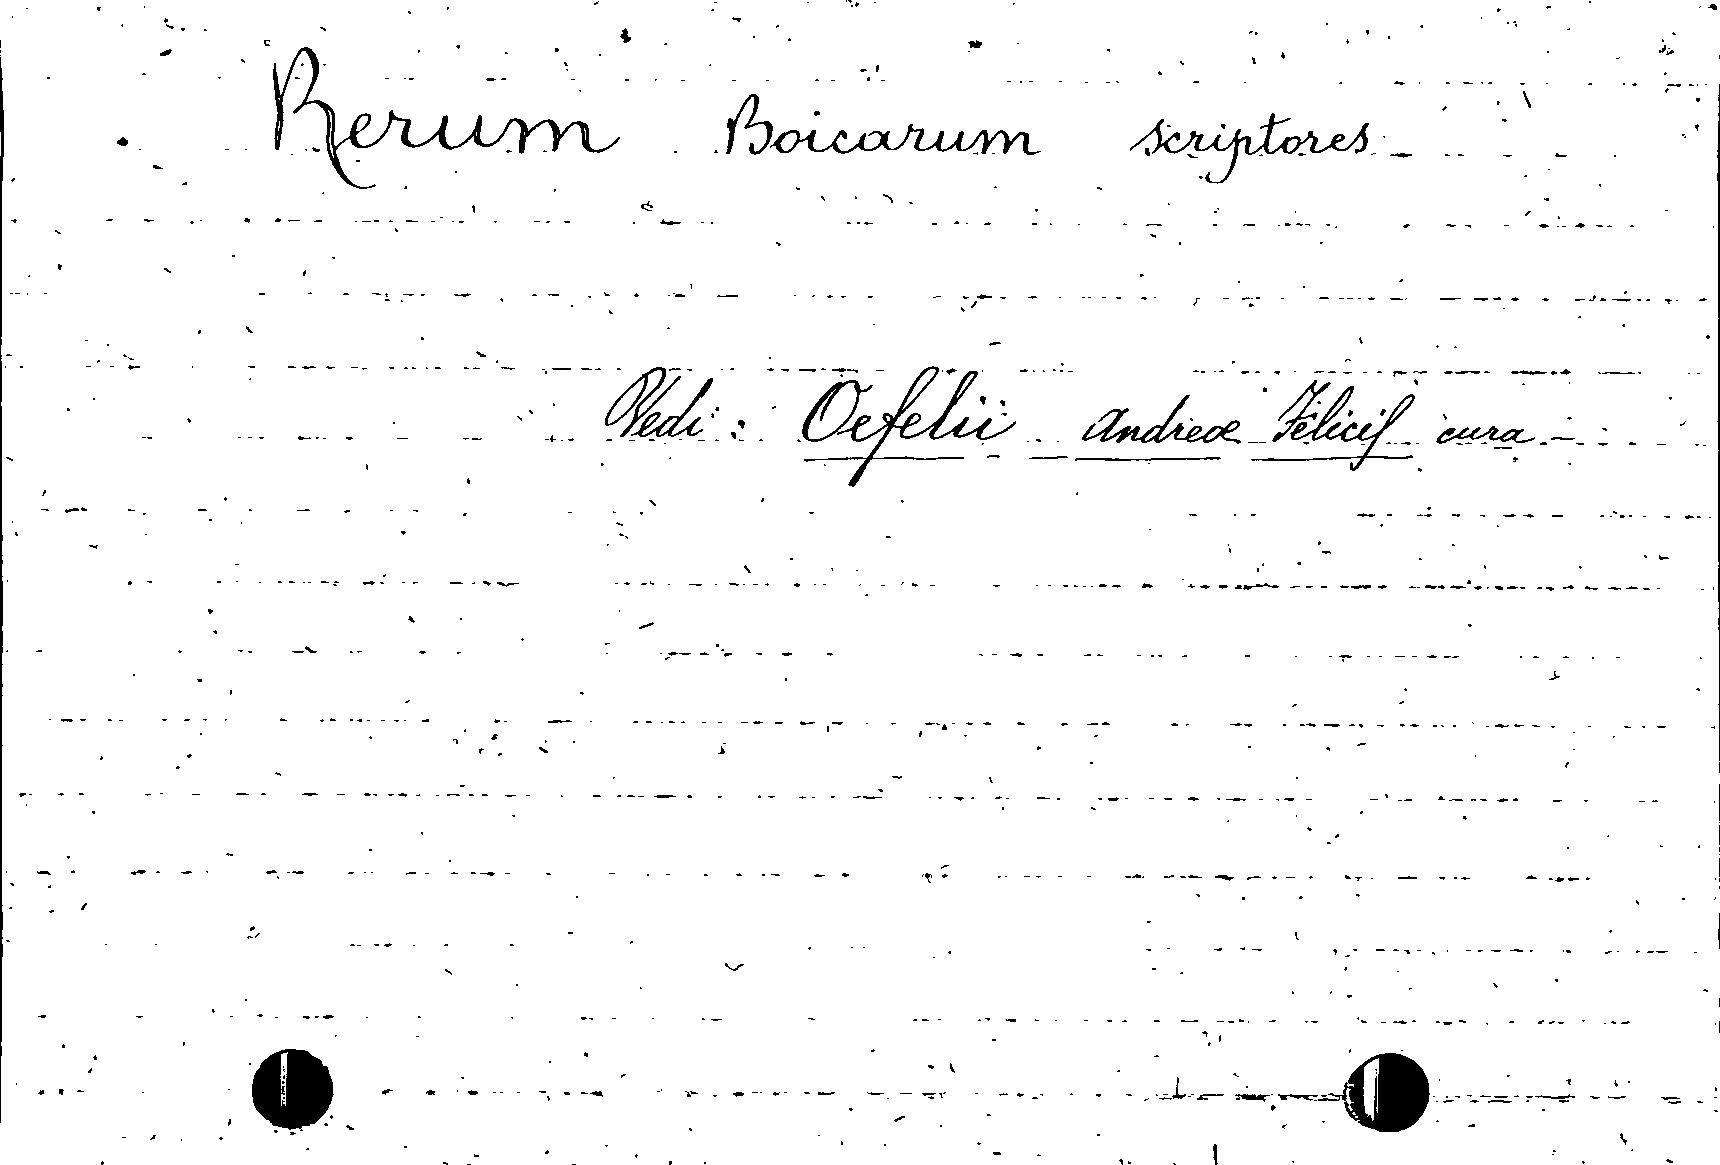 Rerum Boicarum scriptores
Vedi: Oefelii Andreae Felicis cura